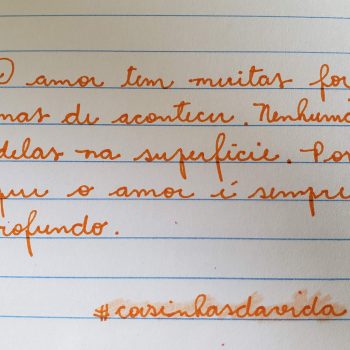 O amor tem muitas for
mas de acontecer. Nenhuma
delas na superfície. Por
que o amor é sempre
profundo.
#coisinhasdavida